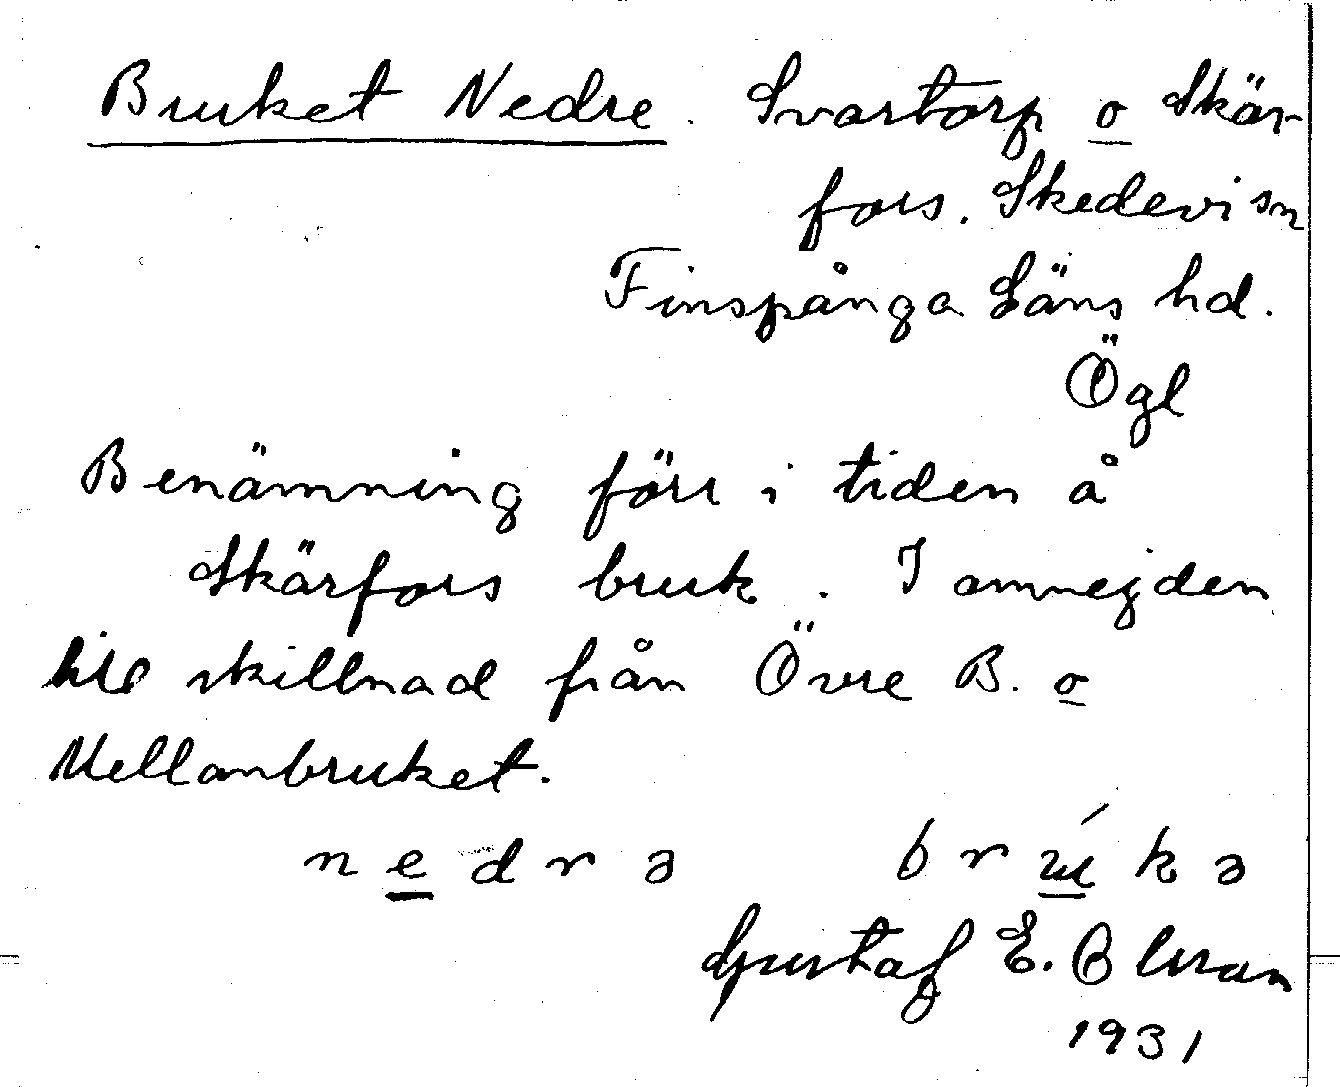 Bruket Nedre. Svartorp o Skär-
fors. Skedevi sn
Finspånga Läns hd.
Ögl
Benämning förr i tiden å
Skärfors bruk. I omnejden
till skillnad från Övre B. o
Mellanbruket.
n e d r ə b r ú k ə
Gustaf E.
1931